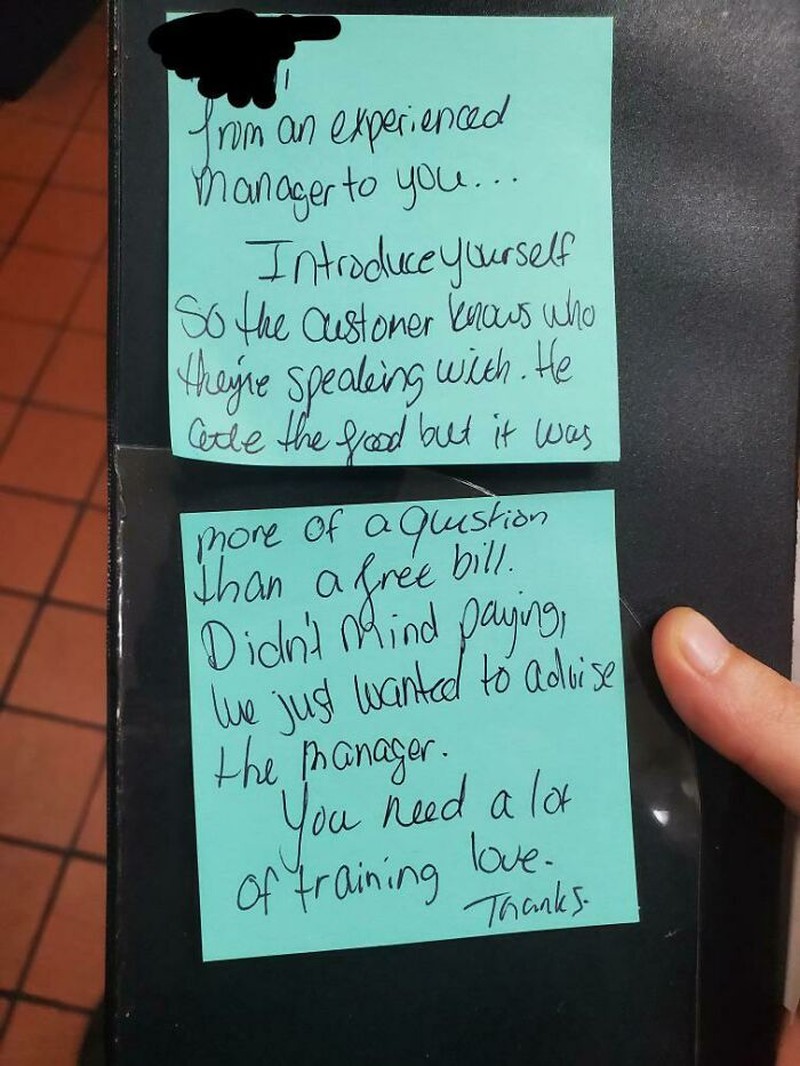 from an experienced
manager to you...
Introduce yourself
So the customer knows who
they're speaking with. He
ate the food but it was
more of a question
than a free bill.
Didn't mind paying,
we just wanted to advise
the manager.
You need a lot
of training love.
Thanks.